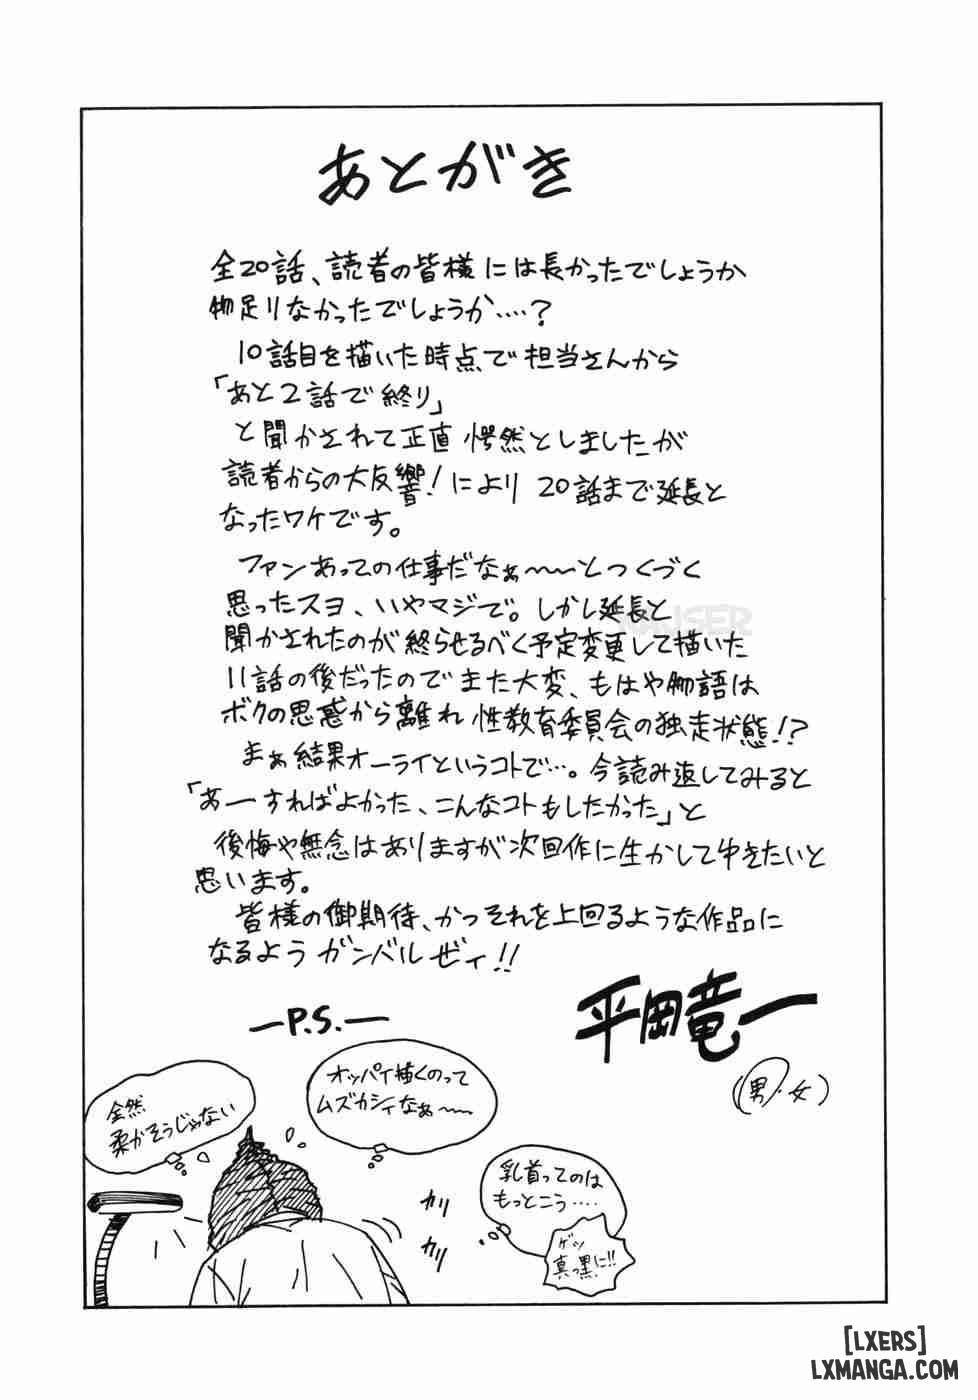 あとがき
全20話、読者の皆様には長かったでしょうか
物足りなかったでしょうか‥‥?
10話目を描いた時点で担当さんから
「あと2話で終り」
と聞かされて正直愕然としましたが
読者からの大反響!により20話まで延長と
なったワケです。
ファンあっての仕事だなぁ〜〜とつくづく
思ったスヨ、いやマジで。しかし延長と
聞かされたのが終らせるべく予定変更して描いた
11話の後だったのでまた大変、もはや物語は
ボクの思惑から離れ性教育委員会の独走状態!?
まぁ結果オーライというコトで…。今読み返してみると
「あーすればよかった、こんなコトもしたかった」と
後悔や無念はありますが次回作に生かしてゆきたいと
思います。
皆様の御期待、かつそれを上回るような作品に
なるようガンバルゼィ!!
平岡竜一
(男・女)
ーP.S.ー
オッパイ描くのって
ムズカシィなぁ〜〜
全然
柔かそうじゃない
カリ
カリ
乳首ってのは
もっとこう‥‥
ゲッ
真っ黒に!!
KAISER
[LXERS]
LXMANGA.COM